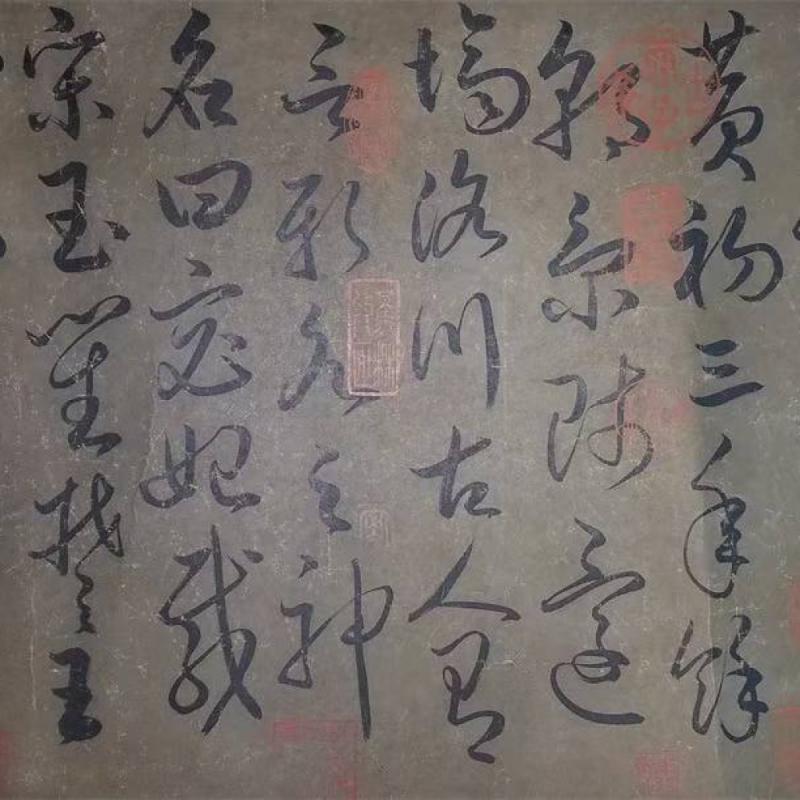 黄初三年餘
朝京師還
濟洛川古人有
言斯水之神
名曰宓妃感
宋玉對楚王